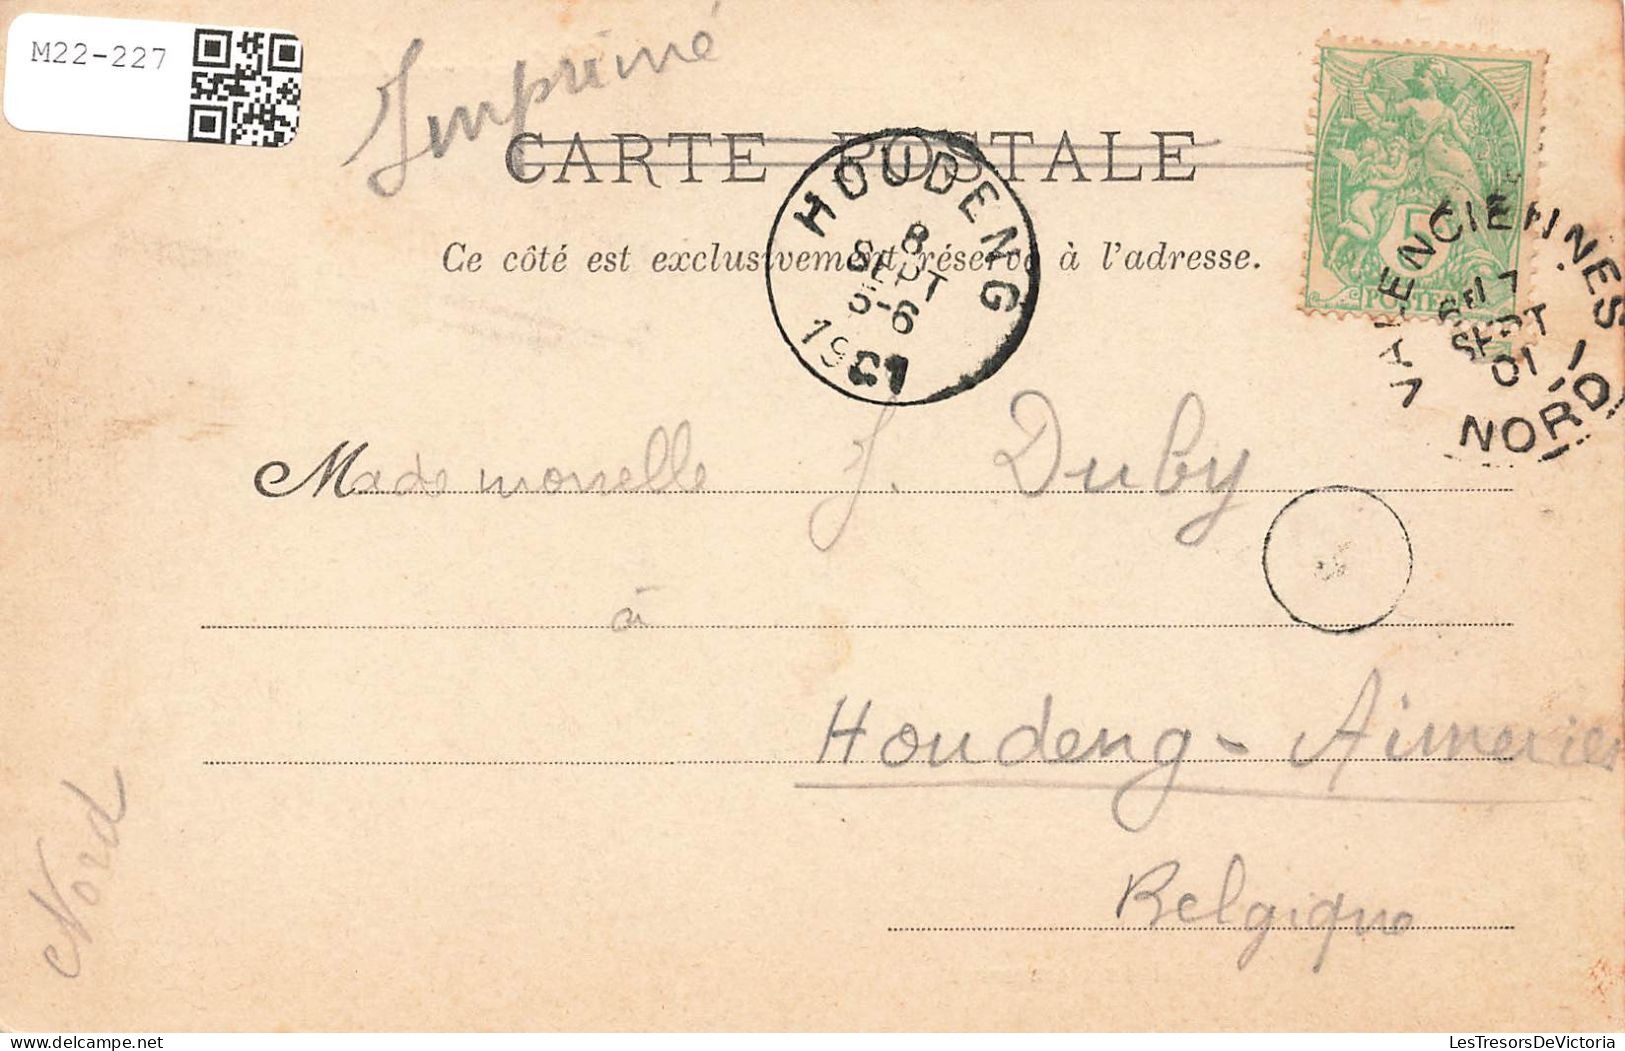 M22-227
Imprimé
CARTE POSTALE
Ce côté est exclusivement réservé à l'adresse.
HOUDENG
8
SEPT
5-6
1901
5
POSTES
VALENCIENNES
7
SEPT
01
NORD
Mademoiselle J. Duby
à
Houdeng-Aimeries
Belgique
Nord
LesTresorsDeVictoria